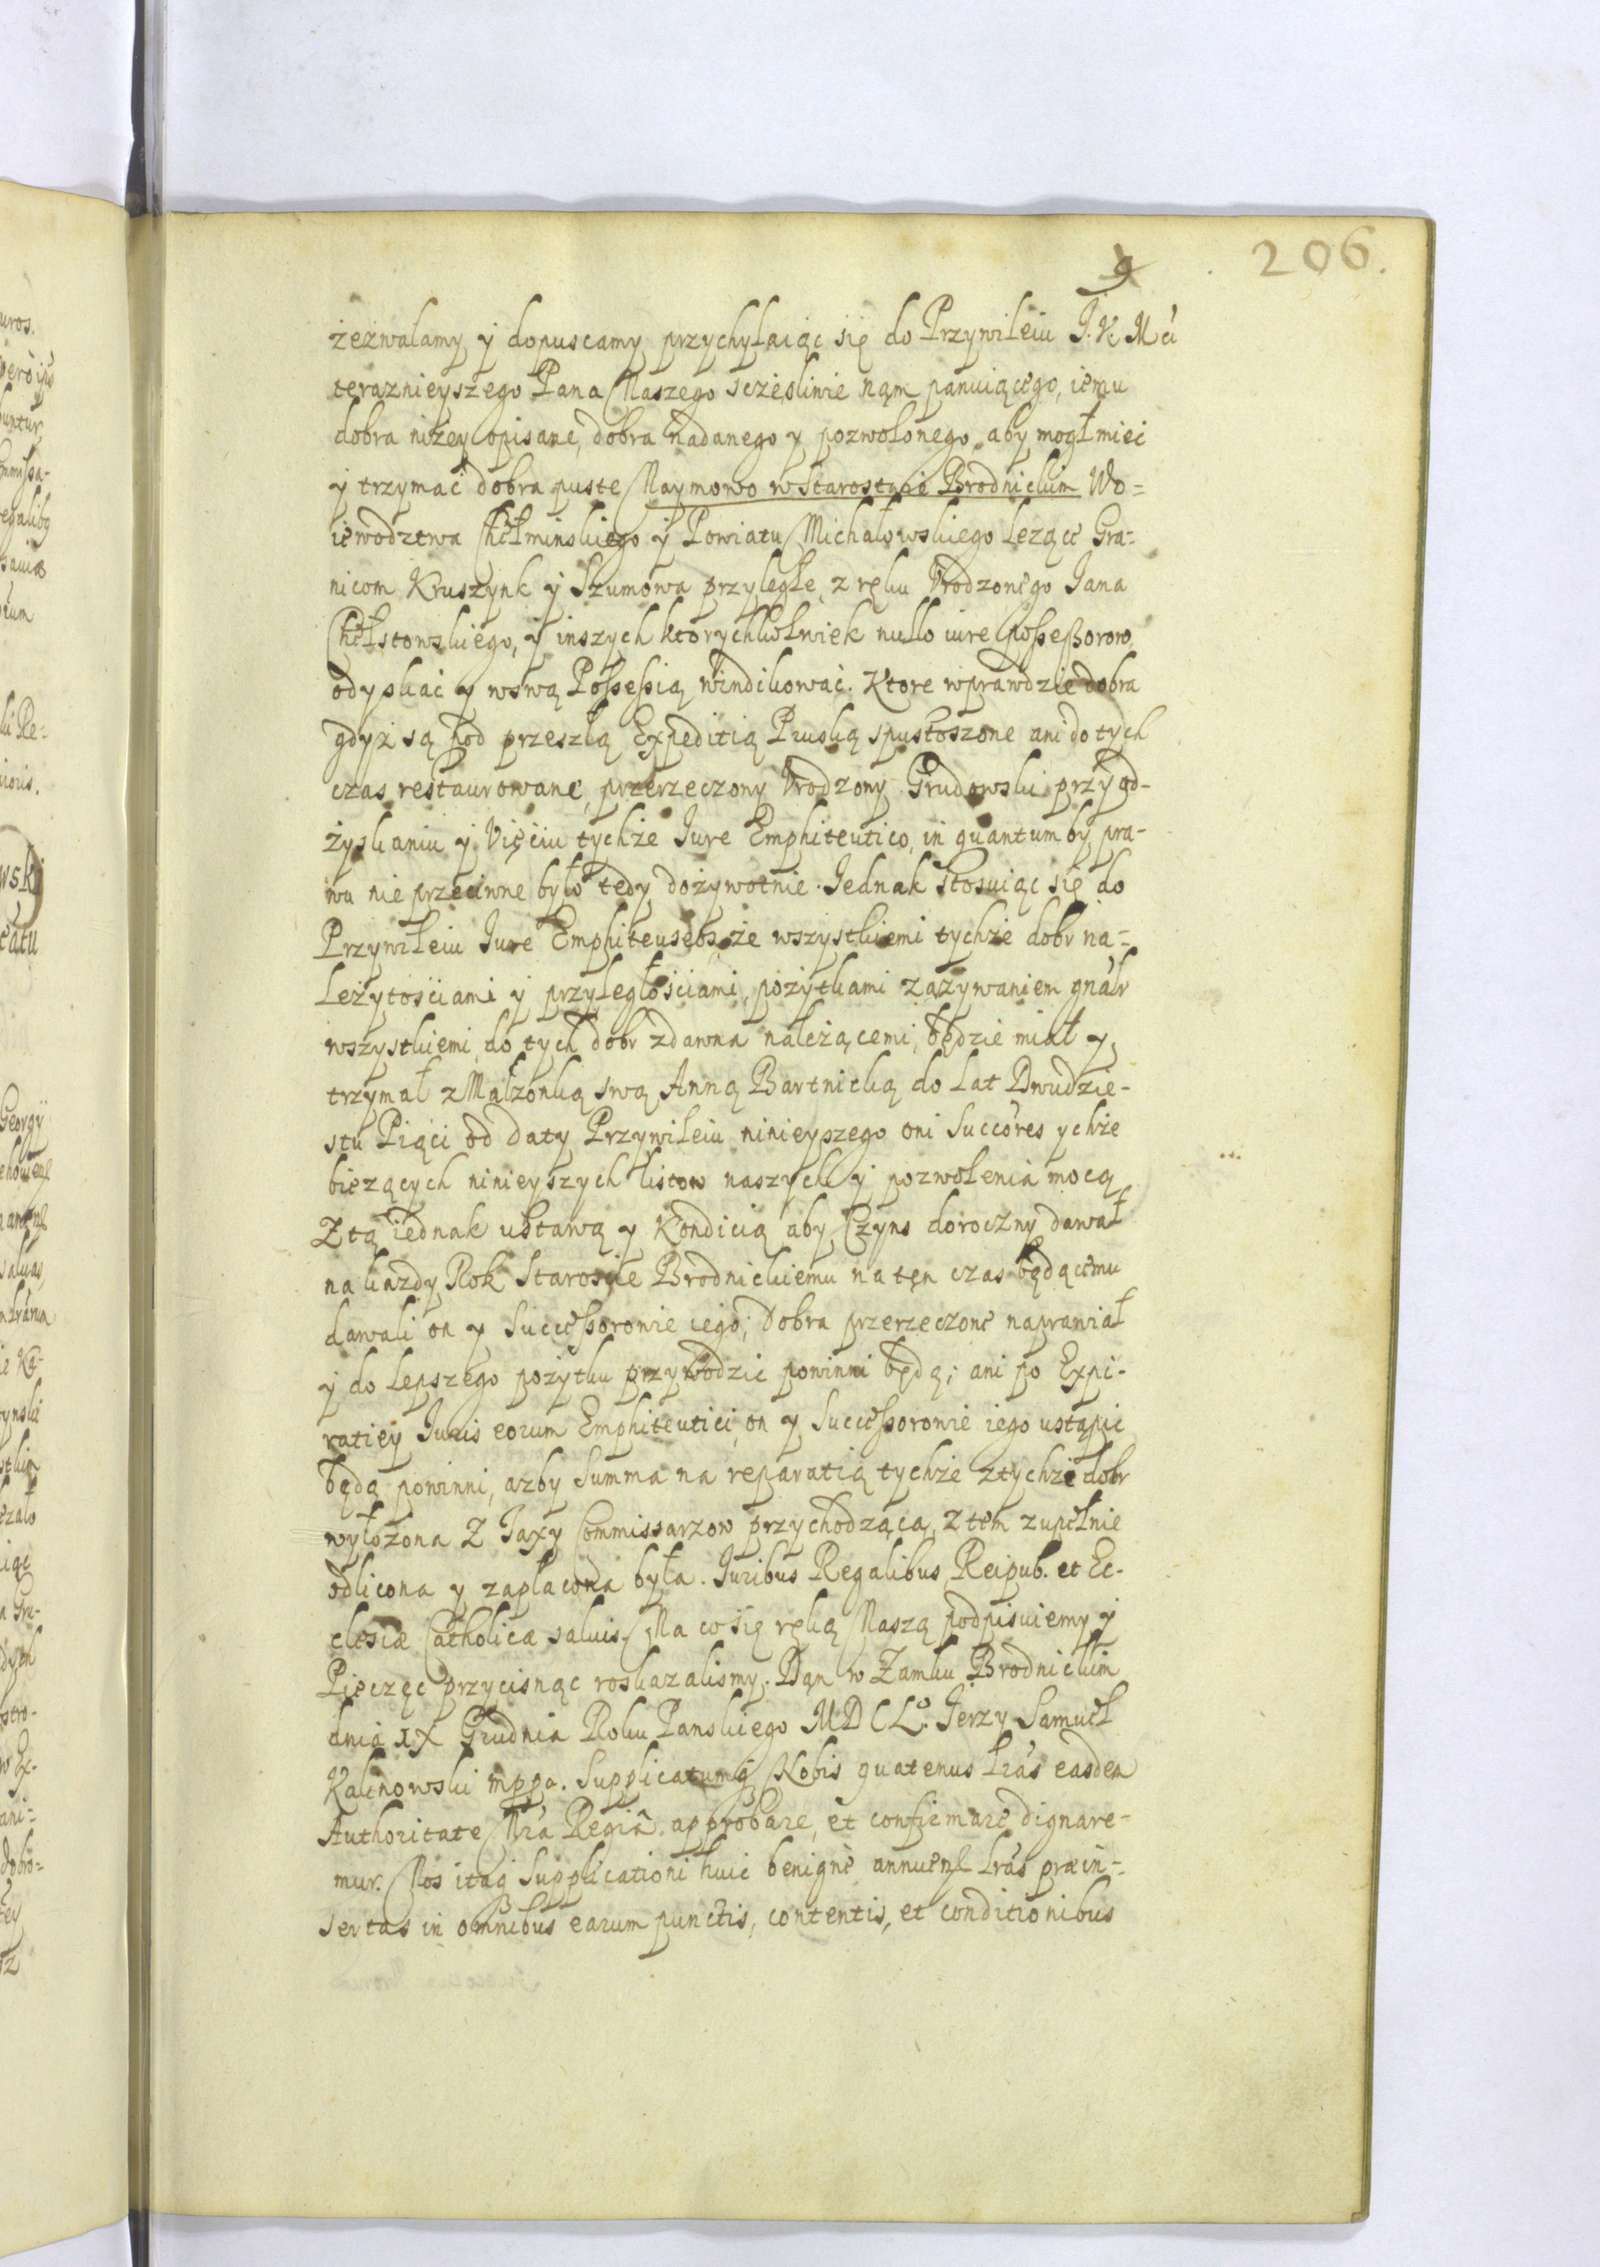 206.
9
zezwalamy y dopuscamy przychylaiąc się do Przywileiu J. K. Mci
teraznieyszego Pana Naszego sczęsliwie nąm panuiącego, iemu
dobra niżey opisane, dobra nadanego y pozwolonego, aby mogł mieć
y trzymać dobra puste Naymowo w Starostwie Brodnickim Wo-
iewodztwa Chełminskiego y Powiatu Michałowskiego lezące Gra-
nicom Kruszynk y Szumowa przyległe, z ręku Vrodzonego Jana
Chełstowskiego, y inszych ktorychkolwiek nullo iure possessorow
odyskać y wswą Possessią windikować. Ktore wprawdzie dobra
gdyż są pod przeszłą Expeditią Pruską spustoszone ani do tych
czas restaurowane, przerzeczony Vrodzony Grudowski przy od-
żyskaniu y Vięciu tychże Jure Emphiteutico, in quantum by pra-
wu nie przeciwne było tedy dożywotnie. Jednak stosuiąc się do
Przywileiu Jure Emphiteuseos, ze wszystkiemi tychże dobr na-
leżytościami y przyległościami, pożytkami zażywaniem gnalr
wszystkiemi do tych dobr zdawna należącemi, będzie miał y
trzymał z Małzonką swą Anną Bartnicką do lat Dwudzie-
stu Piąci od daty Przywileiu ninieyszego oni Succores ychże
bieżących ninieyszych listow naszych y pozwolenia mocą
Z tą iednak ustawą y Kondicią aby Czyns doroczny dawał
na kazdy Rok Staroscie Brodnickiemu na ten czas będącemu
dawali on y Successorowie iego; dobra przerzeczone naprawiał
y do lepszego pożytku przywodzic powinni będą; ani po Expi-
ratiey Juris eorum Emphiteutici, on y Successorowie iego ustąpic
będą powinni, azby Summa na reparatią tychże z tychże dobr
wyłożona Z Taxy Commissarzow przychodząca, z tem zupełnie
odlicona y zapłacona była. Juribus Regalibus Reipub. et Ec-
clesiæ Catholicæ salvis. Na co się ręką Naszą podpisuiemy y
Pieczęc przycisnąc roskazalismy. Dąn w Zamku Brodnickim
dnia IX Grudnia Roku Panskiego MDCLo. Jerzy Samuel
Kalinowski mppa. Supplicatumq Nobis quatenus lras easdem
Authoritate Nra Regiâ approbare, et confirmare dignare-
mur. Nos itaq Supplicationi huic benignè annuen lras præin-
sertas in omnibus earum punctis, contentis, et conditionibus